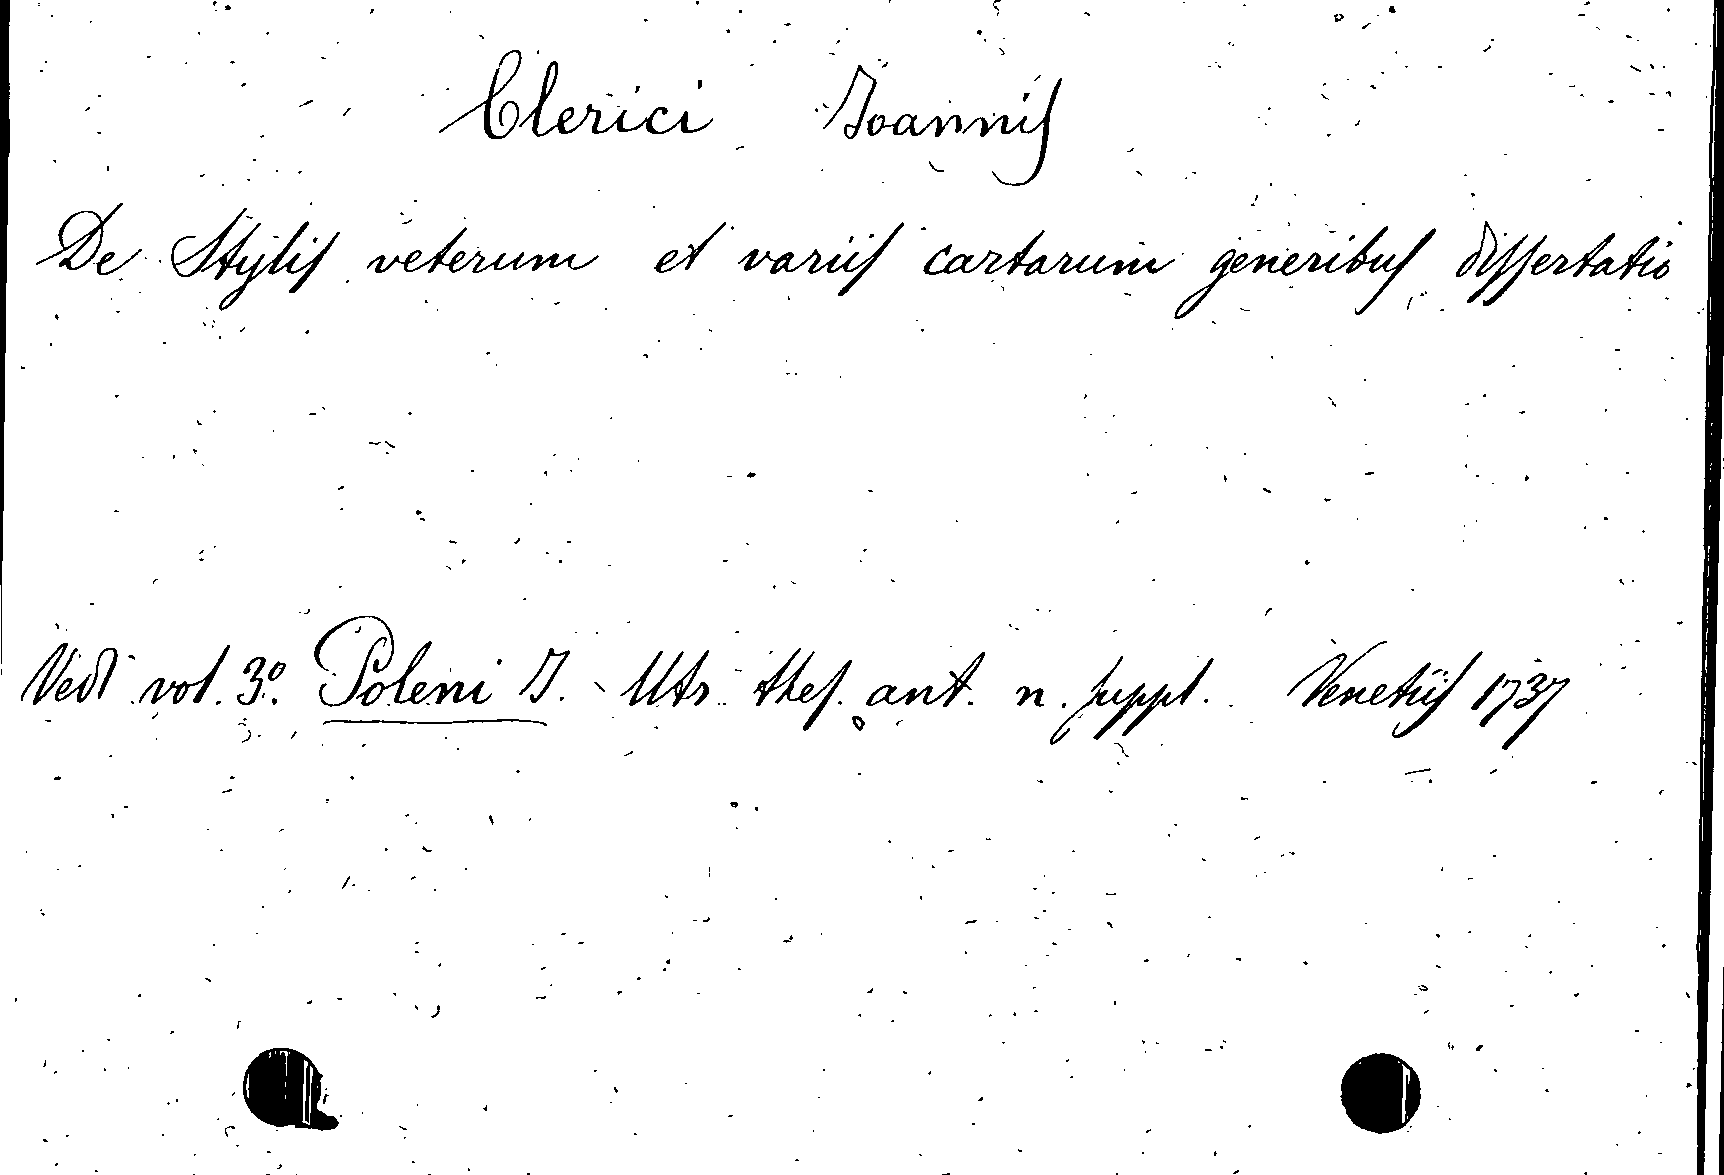 Clerici Joannis
De Stylis veterum et variis cartarum generibus dissertatio
Vedi vol. 3º. Poleni J. - Utr. thes. ant. n. suppl. Venetiis 1737